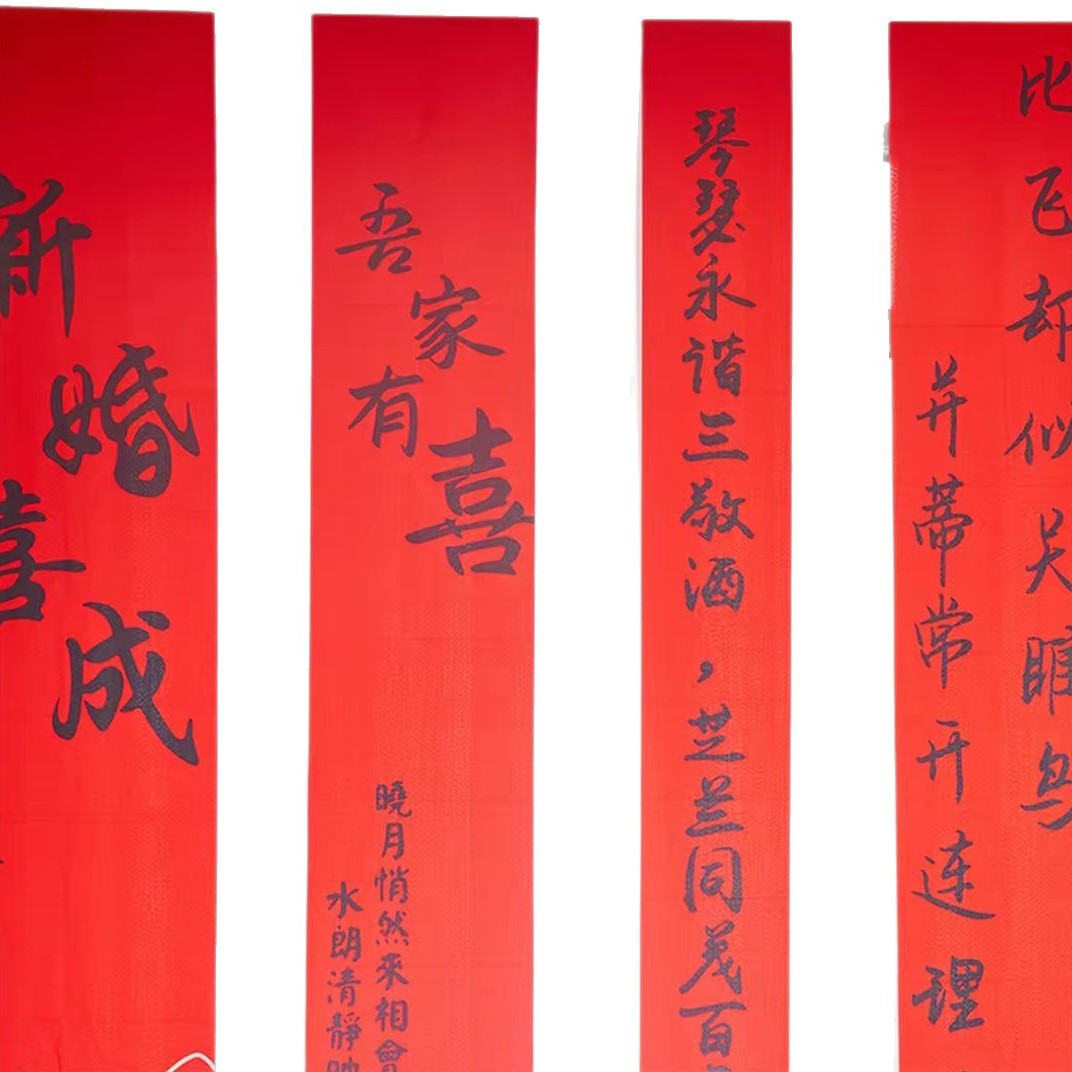 新婚喜成
吾家有喜
曉月悄然來相會
水朗清靜
琴瑟永谐三敬酒，芝兰同茂百
比飞却似关雎鸟
并蒂常开连理